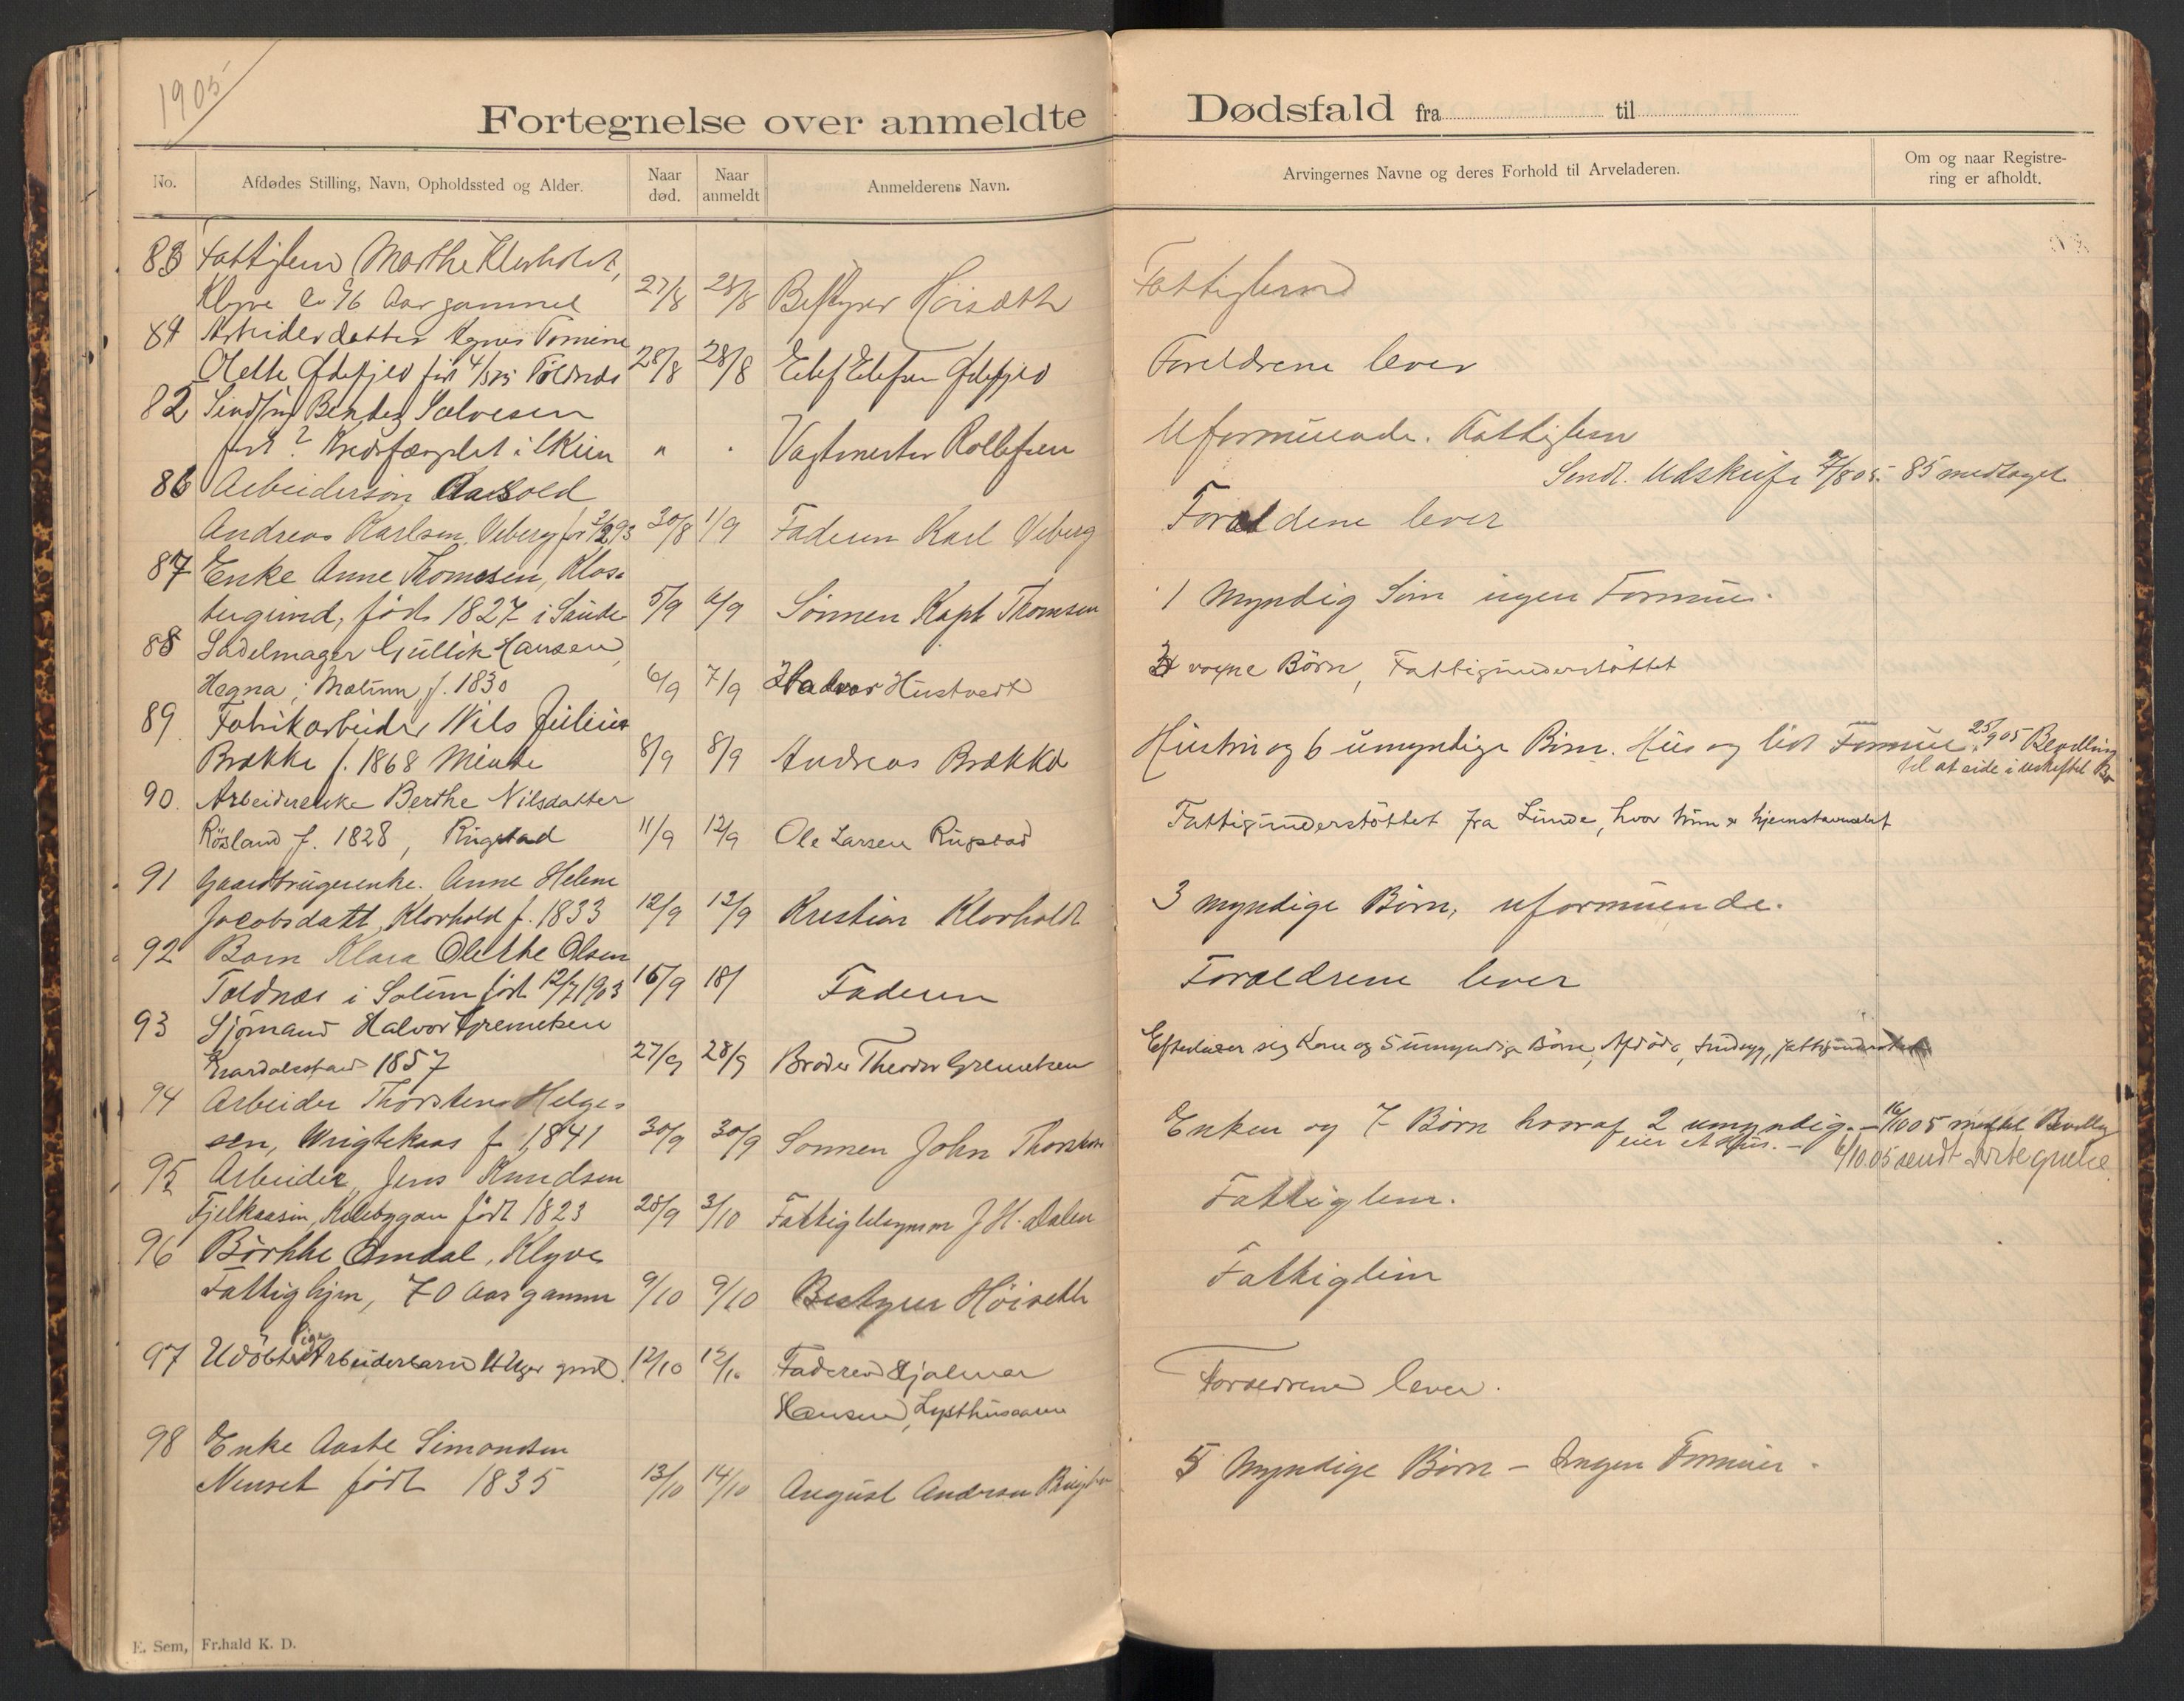 1905
Fortegnelse over anmeldte Dødsfald fra til
No.
Afdødes Stilling, Navn, Opholdssted og Alder.
Naar død.
Naar anmeldt
Anmelderens Navn.
Arvingernes Navne og deres Forhold til Arveladeren.
Om og naar Registre-
ring er afholdt.
83 Fattiglem Marthe Klovholdt,
Klyve ca 96 Aar gammel 27/8 28/8 Bestyrer Höisæth Fattiglem
84 Arbeiderdatter Agnes Tomine
Olette Ødefjeld født 4/5 05 Töldnæs 28/8 28/8 Elef Elefsen Ødefjeld Foreldrene lever
82 Sindssyg Bentes Salvesen
født ? Kredsfængslet i Skien " " Vagtmester Rollefsen Uformuende. Fattiglem
Sendt. Udskrift 7/8 05. 85 medtaget
86 Arbeidersön Aasold
Andreas Karlsen Veberg før 3/2 93 30/8 1/9 Faderen Karl Veberg Foreldene lever
87 Enke Anne Thomesen, Klos-
tergrund, född 1827 i Saude 5/9 6/9 Sönnen Kapt Thomsen 1 Myndig Sön ingen Formue.
88 Sadelmager Gullik Hansen,
Hegna i Mælum f. 1830 6/9 7/9 Halvor Hustvedt 3 voxne Börn, Fattigunderstöttet
89. Fabrikarbeider Nils Julius
Brække f. 1868 Menke 8/9 8/9 Andreas Brække Hustru og 6 umyndige Börn. Hus og lidt Formue. 25/9 05 Bevilling
til at side i uskiftet Bo
90. Arbeiderenke Berthe Nilsdatter
Rösland f. 1828, Ringstad 11/9 12/9 Ole Larsen Rugstad Fattigunderstöttet fra Lunde, hvor hun er hjemstavnslet
91 Gaardbrugerenke. Anne Helene
Jacobsdatt, Klovhold f. 1833 12/9 12/9 Kristian Klovholdt 3 myndige Börn, uformuende.
92 Barn Klara Olethe Olsen
Töldnæs i Solum födt 12/7 1903 16/9 18/ Faderen Foreldrene lever
93 Sjömand Halvor Gremetsen
1857 27/9 28/9 Broder Theodor Gremetsen Efterlader sig Kone og 5 umyndige Börn, Afdöde, sindsyg,
94 Arbeider Thorsten Helge-
sen, Vrigtekaas f. 1841 30/9 30/9 Sonnen John Thorsten Enken og 7 Börn hvoraf 2 umyndig. - 16/10 05 meddel Bevilling
eier et Hus. - 6/10 05 sendt
95 Arbeider, Jens Knudsen
Fjelkaasin, Kilebygden födt 1823 28/9 3/10 Fattigtilsynsm J H. Dalen Fattiglem.
96 Börkke Omdal, Klyve
Fattighjm, 70 Aar gamm 9/10 9/10 Bestyrer Höiseth Fattiglim
97 Udöbt Pige Arbeiderbarn Uger gml. 12/10 12/10 Faderen Hjalmar
Hansen, Lysthusaasen Foreldrene lever.
98 Enke Aaste Simondsen
Menset född 1835 13/10 14/10 August Andersen 5 Myndige Börn - Ingen Formue.
E. Sem, Fr.hald K. D.